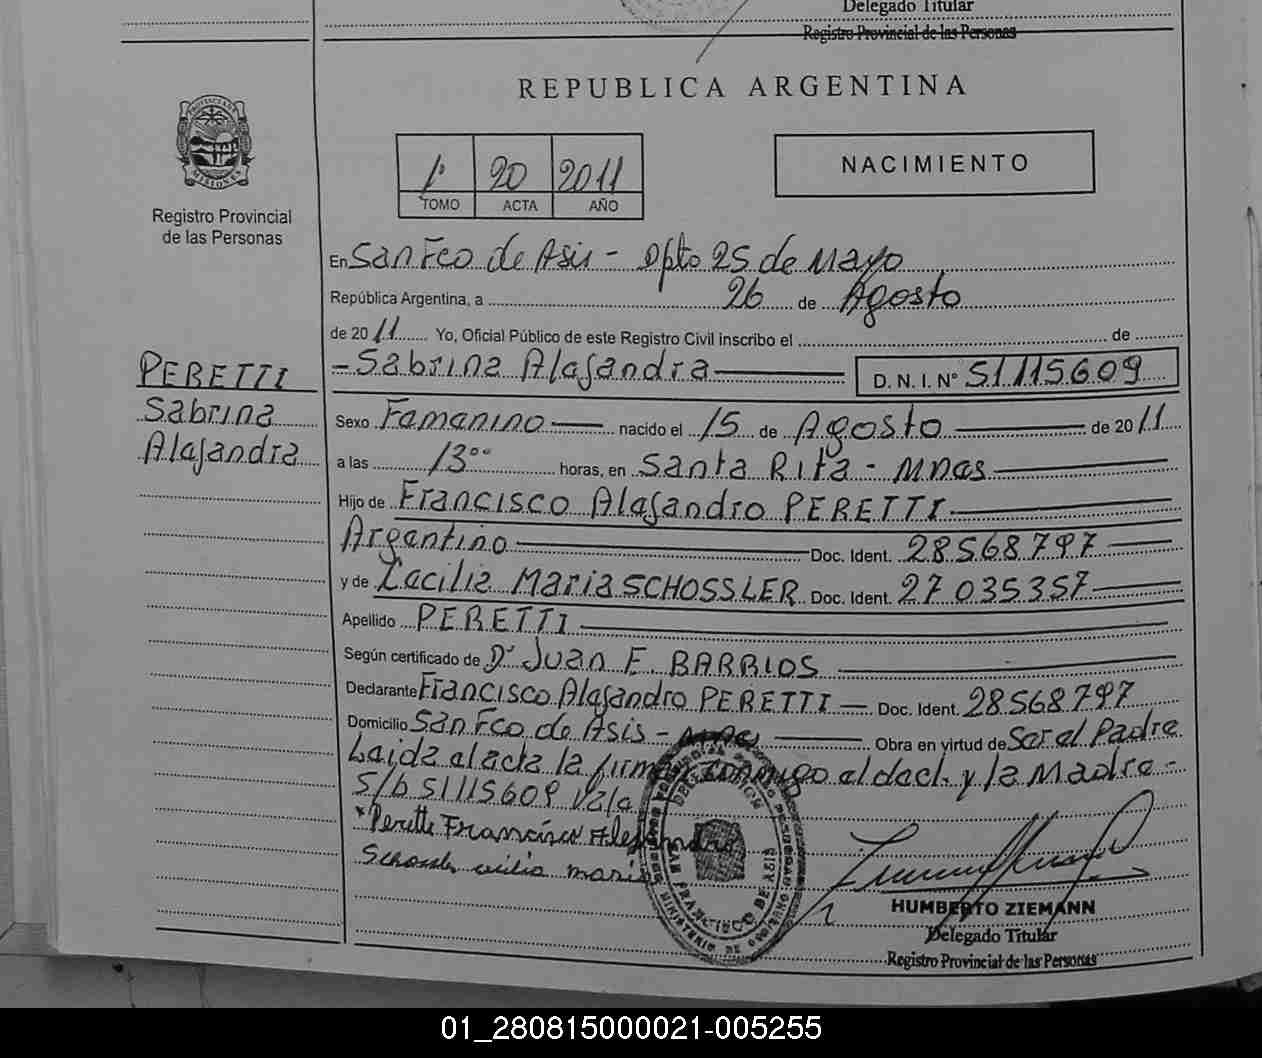 Delegado Titular
Registro Provincial de las Personas
REPUBLICA ARGENTINA
PROVINCIA DE MISIONES
Registro Provincial
de las Personas
1º 20 2011
TOMO ACTA AÑO
NACIMIENTO
En San Fco de Asis - Dpto 25 de Mayo
República Argentina, a 26 de Agosto
de 2011 Yo, Oficial Público de este Registro Civil inscribo el de
- Sabrina Alejandra D. N. I. Nº 51115609
PERETTI
Sabrina
Alejandra
Sexo Femenino nacido el 15 de Agosto de 2011
a las 13⁰⁰ horas, en Santa Rita - Mnes
Hijo de Francisco Alejandro PERETTI
Argentino Doc. Ident. 28.568.797
y de Cecilia Maria SCHOSSLER Doc. Ident. 27.035.357
Apellido PERETTI
Según certificado de Dr Juan E. BARRIOS
Declarante Francisco Alejandro PERETTI Doc. Ident. 28568797
Domicilio San Fco de Asis - Mnes Obra en virtud de Ser el Padre
Leida el acta la firman conmigo el decl. y la Madre -
S/b 51115609 Vale
*Peretti Francisco Alejandro
Schossler cecilia maria
DELEGACION
SAN FRANCISCO DE ASIS
MINISTERIO DE GOBIERNO
HUMBERTO ZIEMANN
Delegado Titular
Registro Provincial de las Personas
01_280815000021-005255